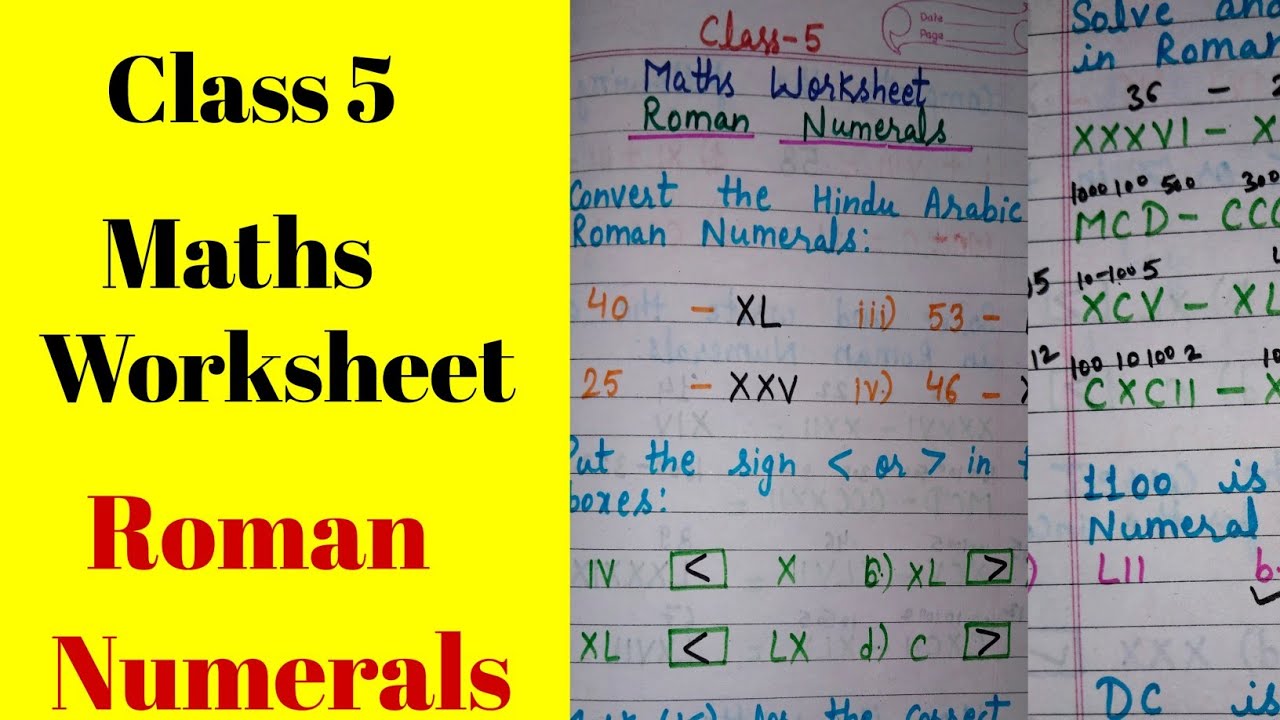 Class 5
Maths
Worksheet
Roman
Numerals
Class-5
Date
Page
Maths Worksheet
Roman Numerals
Convert the Hindu Arabic
Roman Numerals:
40 - XL iii) 53 -
25 - XXV iv.) 46 -
Put the sign < or > in
boxes:
IV < X b.) XL >
XL < LX d.) C >
for the correct
Solve
in Roman
36 -
XXXVI - X
1000 100 500 300
MCD - CCC
10-100 5
XCV - XL
12 100 10 100 2
CXCII - X
1100 is
Numeral
LII b.
DC is